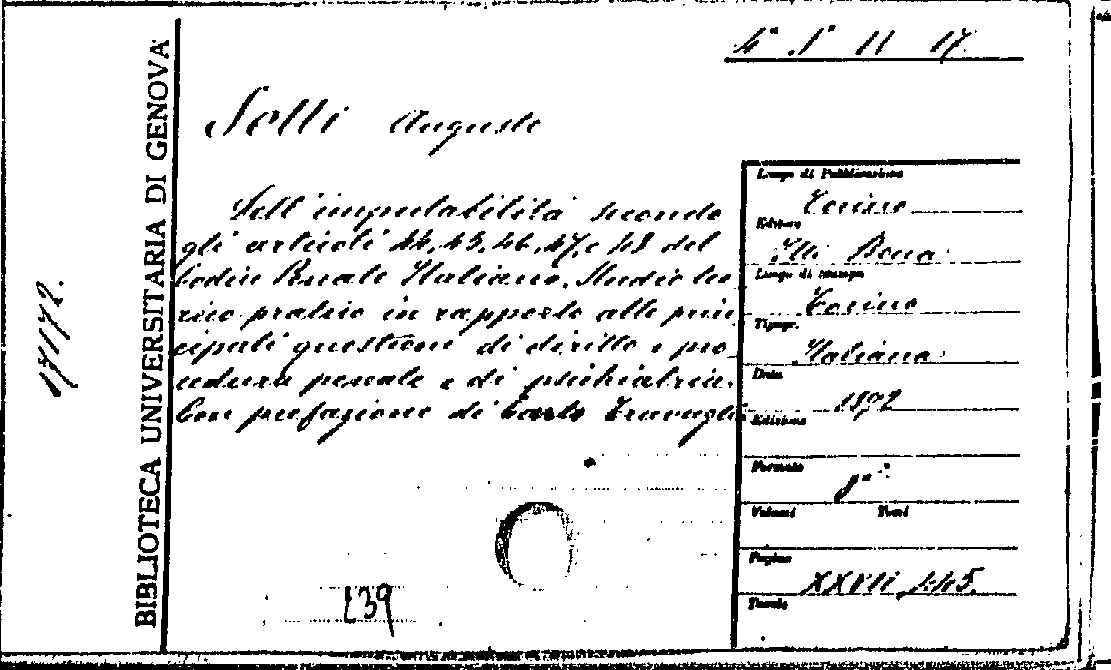 BIBLIOTECA UNIVERSITARIA DI GENOVA
17172.
Setti Augusto
Dell'imputabilità secondo
gli articoli 44, 45, 46, 47, e 48 del
Codice Penale Italiano. Studio teo
rico pratico in rapporto alle prin
cipali questioni di diritto e pro
cedura penale e di psichiatria.
Con prefazione di Carlo Travaglia
239
Luogo di Pubblicazione
Torino
Editore
Flli Bocca
Luogo di stampa
Torino
Tipogr.
Italiana
Data
1892
Edizione
Formato
8°
Volumi Tomi
Pagine
XXVII, 445.
Tavole